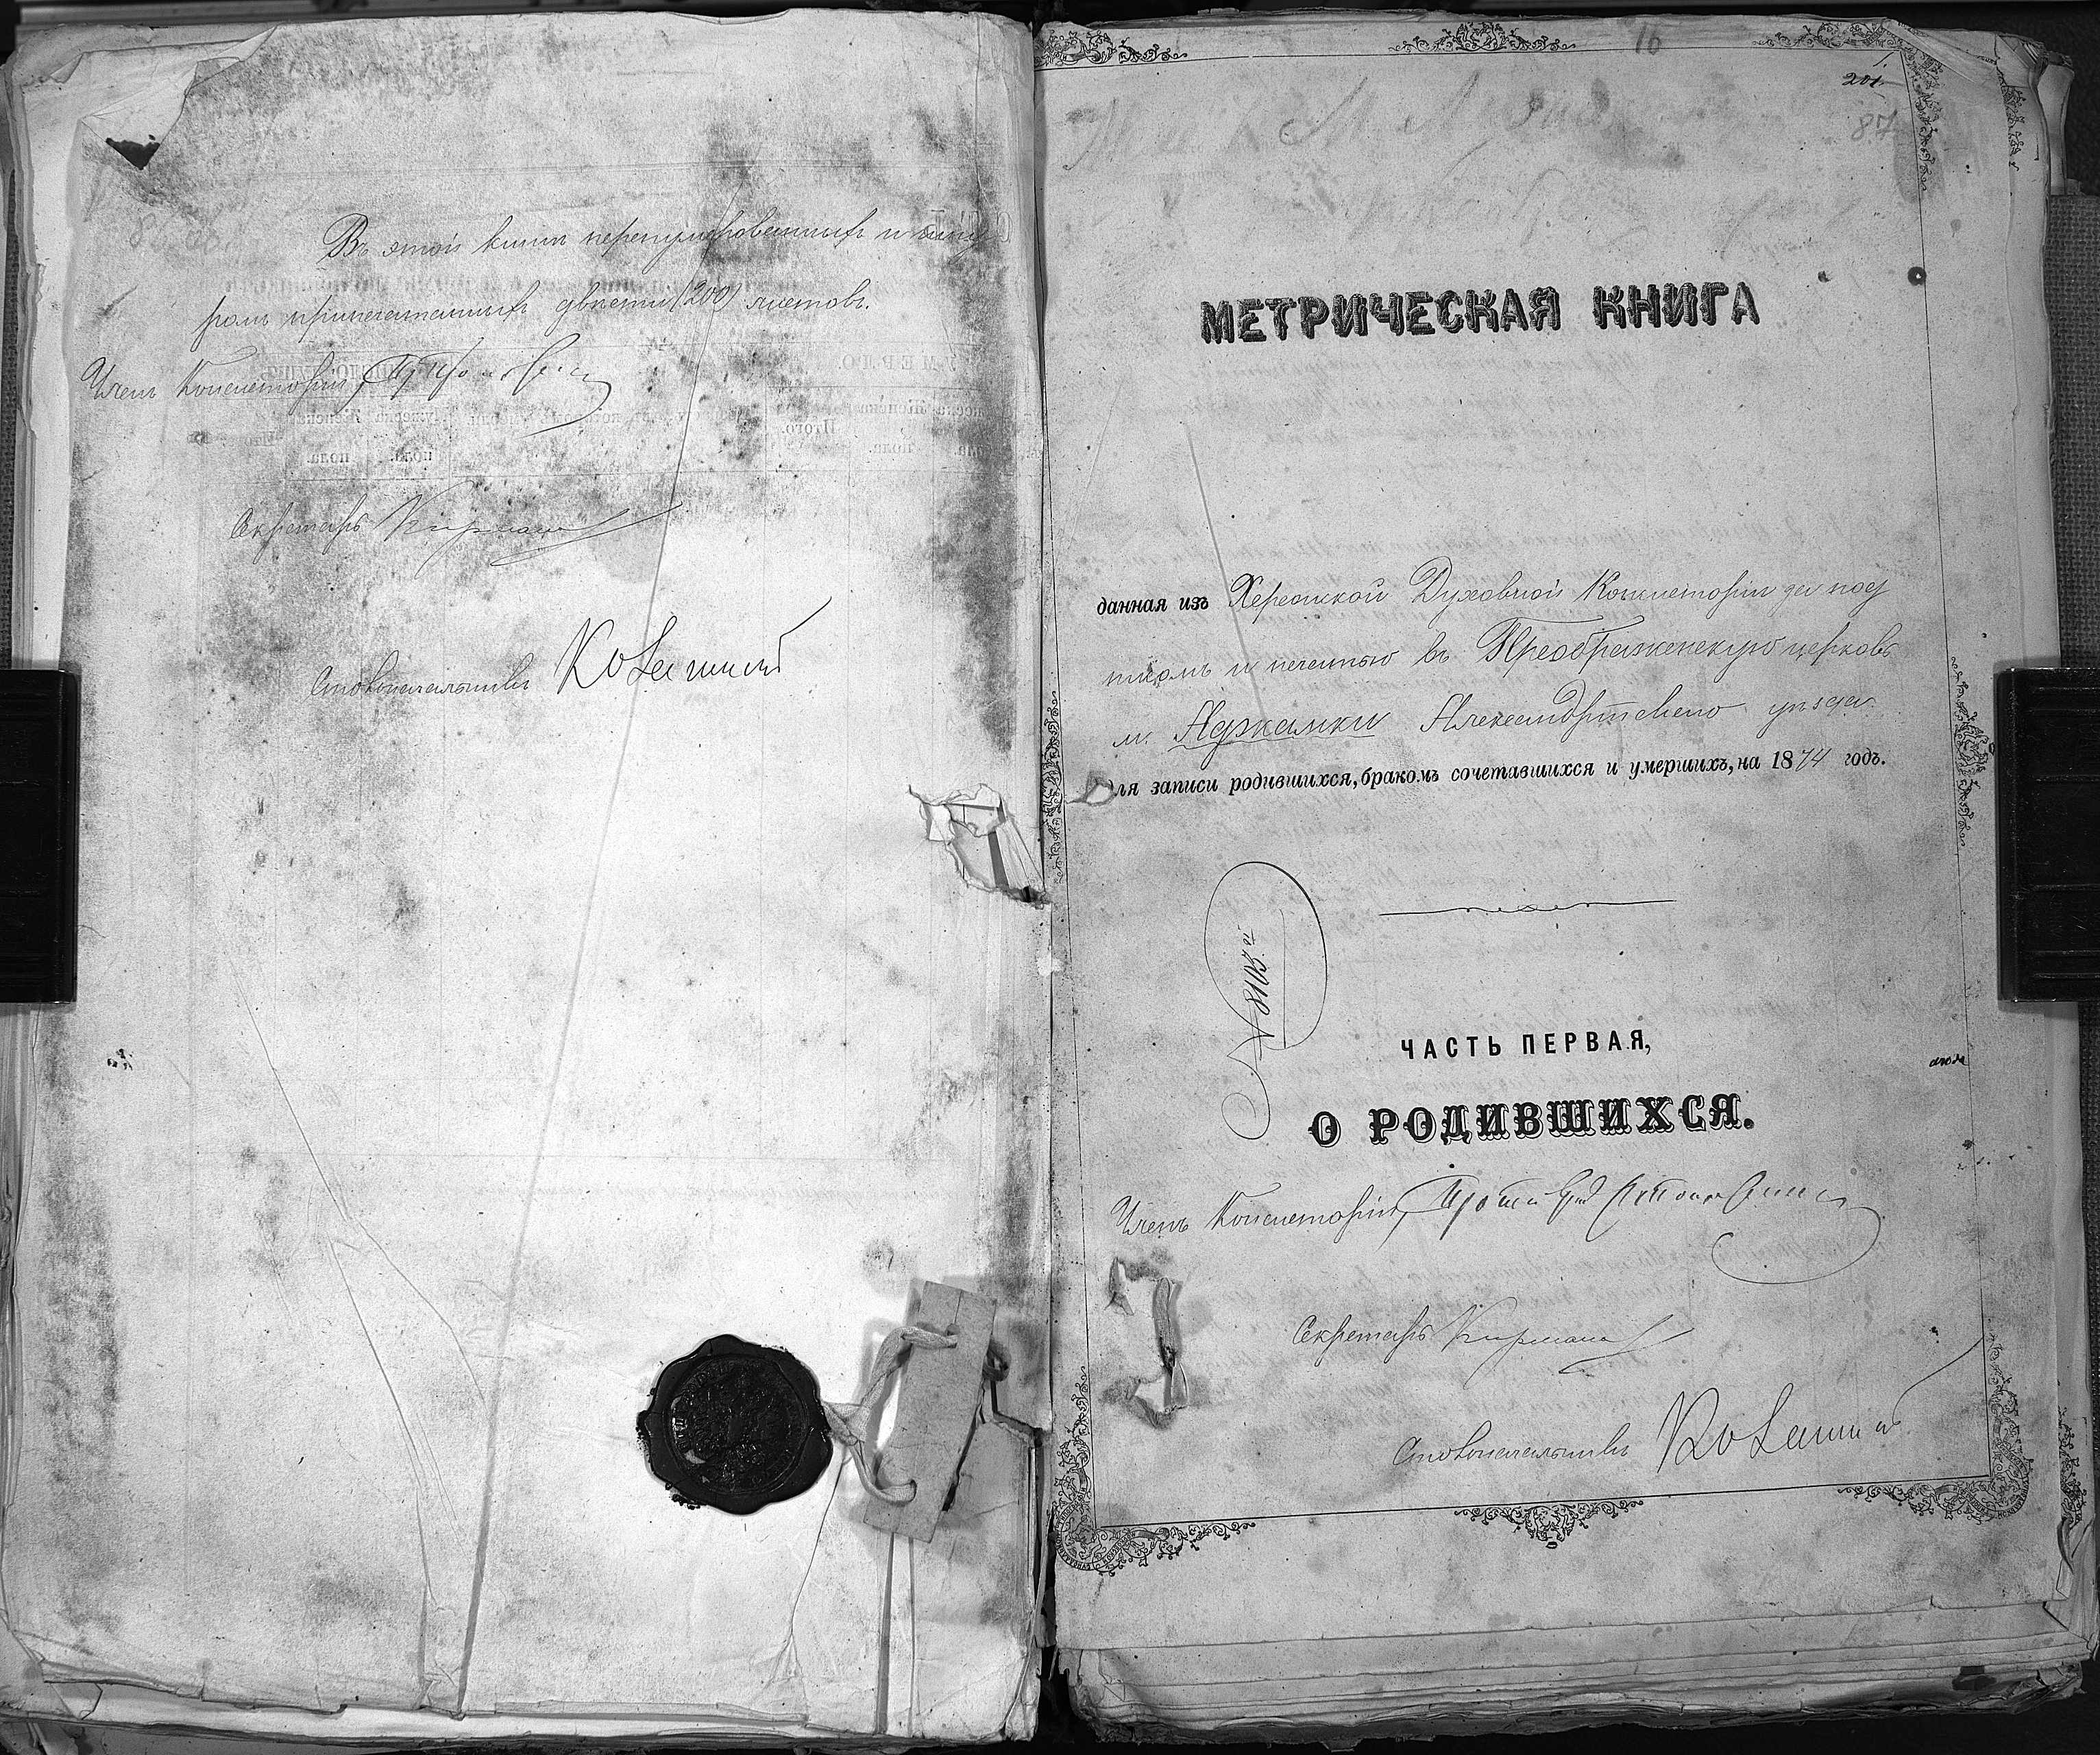 Въ этой книгѣ перенумерованныхъ и шну
ромъ припечатанныхъ двѣсти (200) листовъ.
Членъ Консисторіи,
Секретарь
Столоначальникъ
16
1.
201.
87
МЕТРИЧЕСКАЯ КНИГА
данная изъ Херсонской Духовной Консисторіи за под
писомъ и печатью въ Преображенскую церковь
м. Аджамки Александрійскаго уѣзда
для записи родившихся, бракомъ сочетавшихся и умершихъ, на 1874 годъ.
N 8103.й
ЧАСТЬ ПЕРВАЯ,
О РОДИВШИХСЯ.
Членъ Консисторіи,
Секретарь
Столоначальникъ